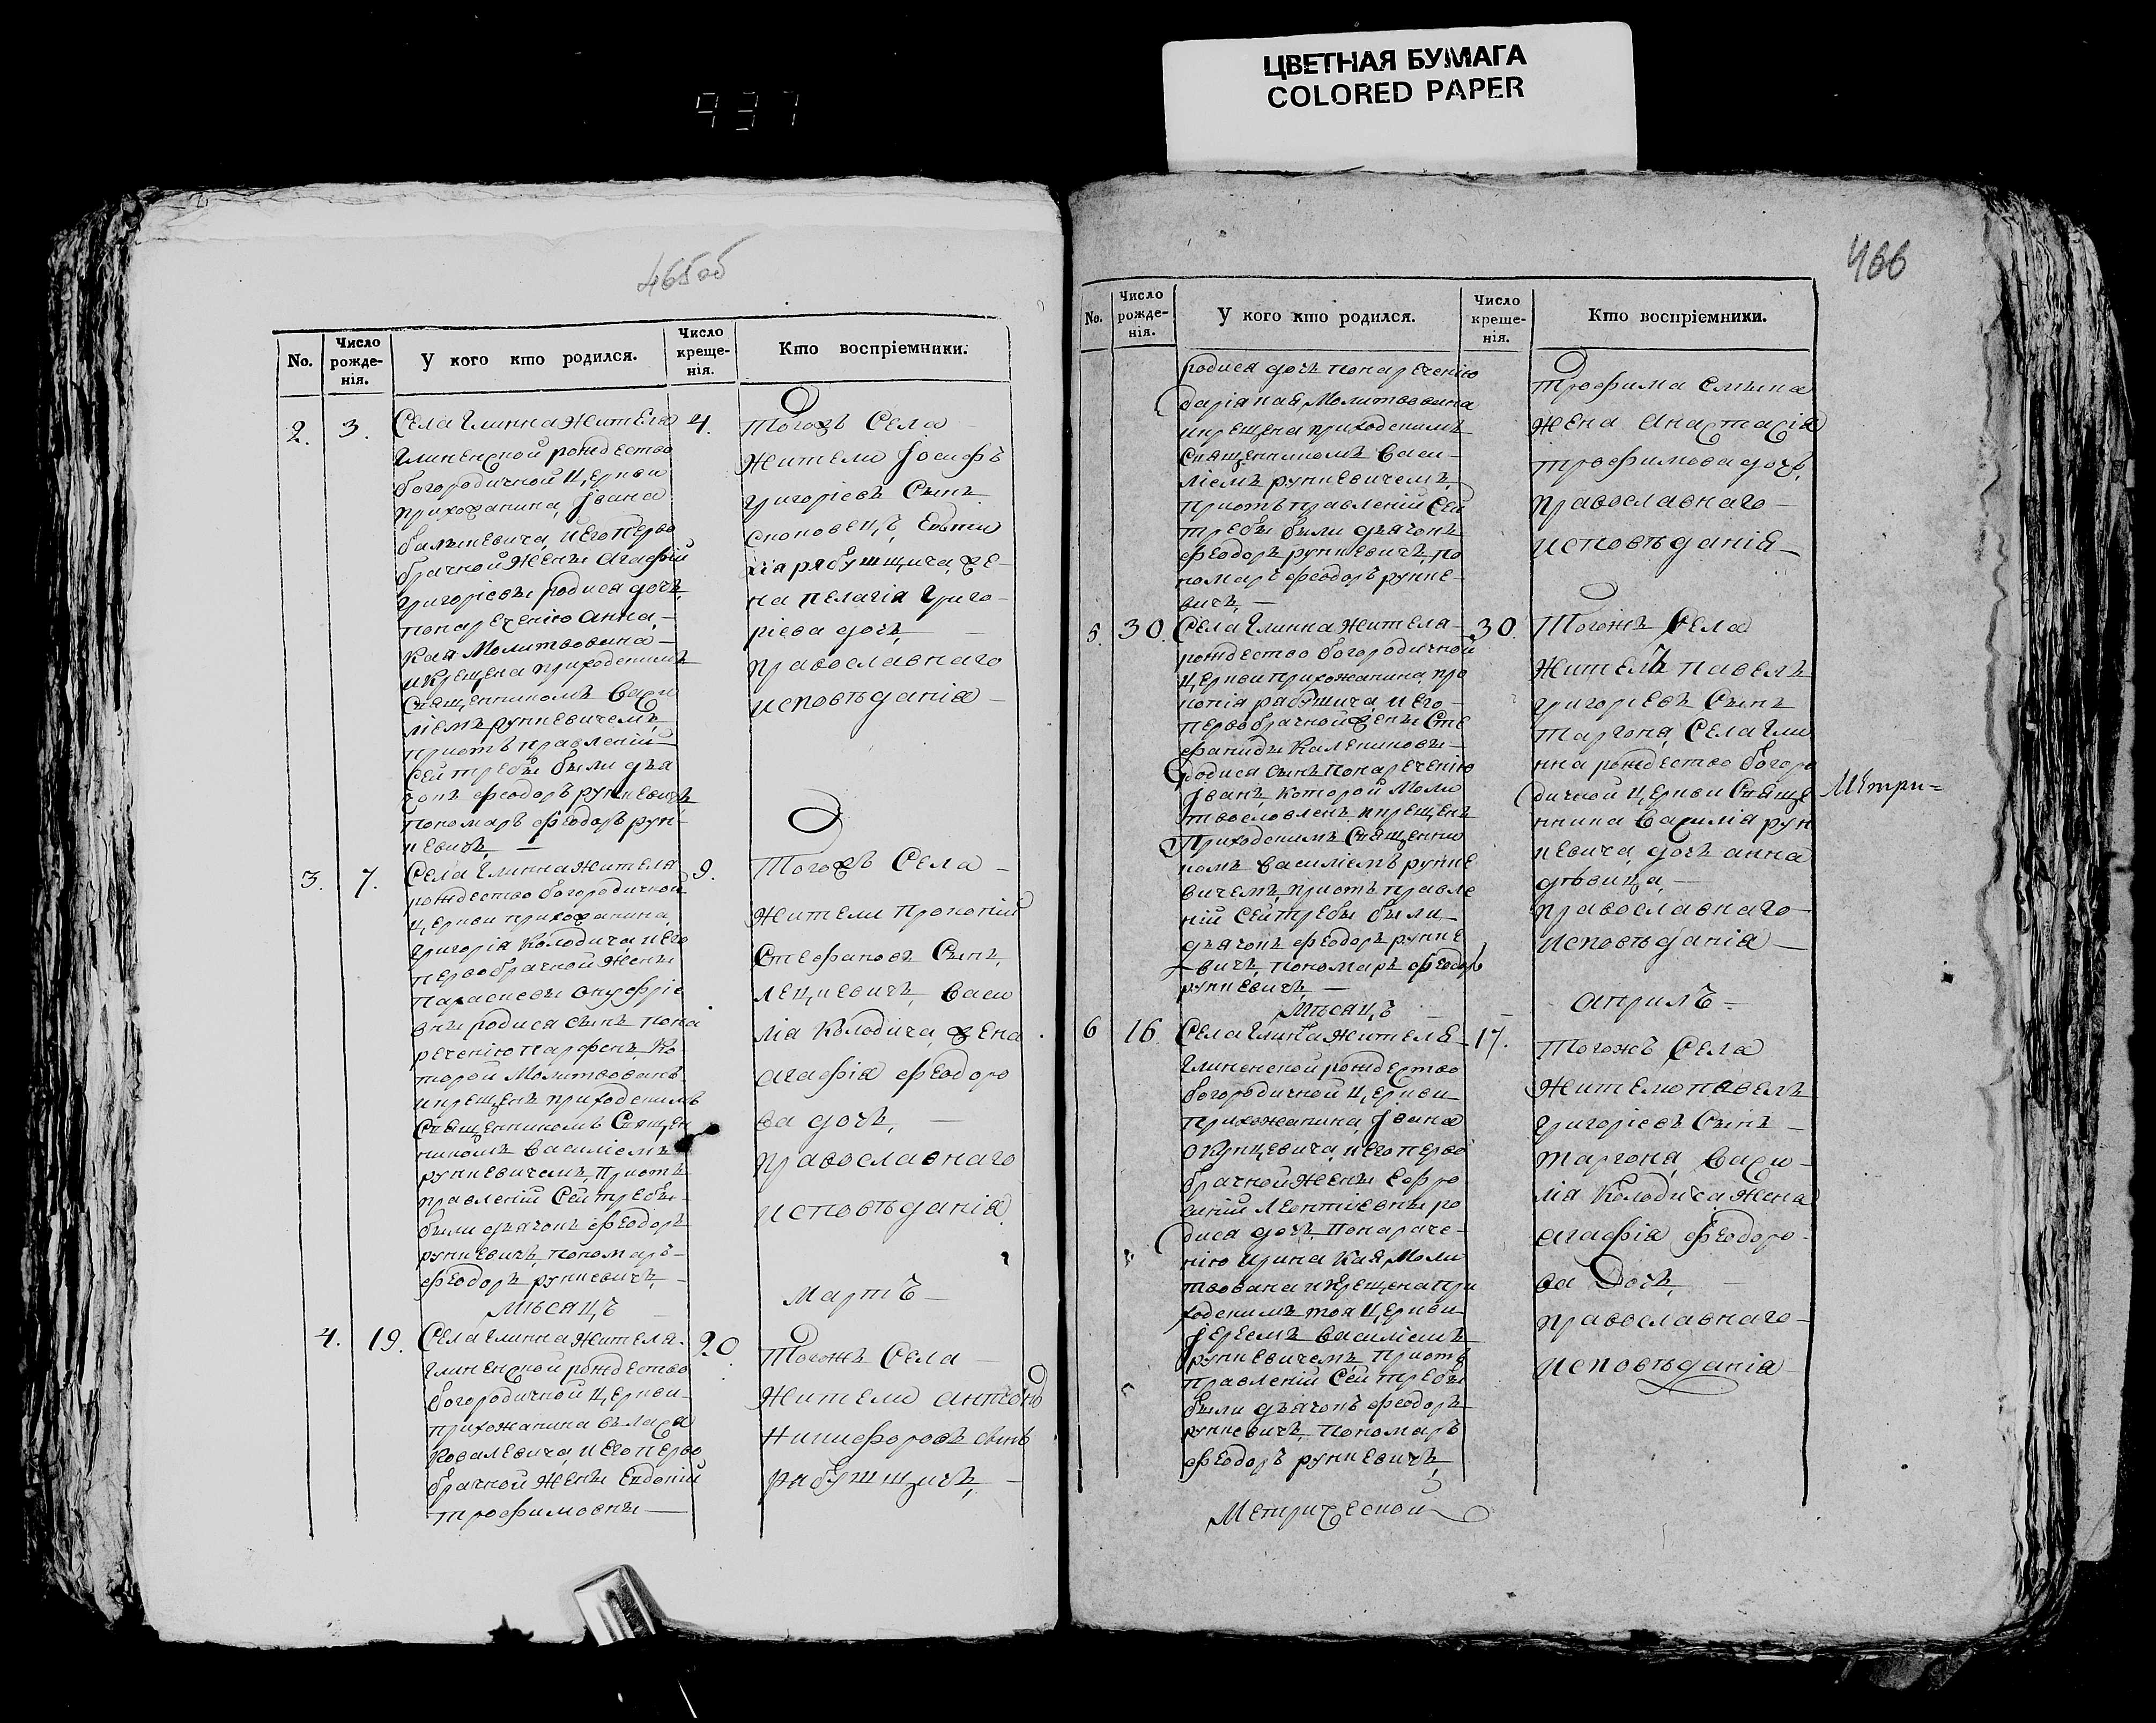 ЦВЕТНАЯ БУМАГА
COLORED PAPER
937
465об
No.
Число рожде-нія.
У кого кто родился.
Число креще-нія.
Кто воспріемники.
2. 3.
Села Глинна жителя
глиненской рождество
богородичной церкви
прихожанина Івана
и его перво
брачной жены Агафій
григоріевы родися дочь
понаречению анна,
кая Молитвована
и крещена приходскимъ
Священникомъ Васи
ліемъ рункевичемъ,
приотъправленій
сей требы были дья
чокъ феодоръ рункевичъ
пономаръ феодоръ рун-
кевичъ, —
4.
тогожъ Села
жители Іосифъ
григоріевъ Сынъ
рябушщича, же-
на пелагія григо-
ріева дочь,
православнаго
исповѣданія —
3. 7.
Села Глинна жителя
рождество богородичной
церкви прихожанина
григорія Колодича, и его
первобрачной жены
параскевы онуфріе
вны родися сынъ пона
речению парфенъ, Ко
торой Молитвованъ
и крещенъ приходскимъ
Священникомъ Священ
никомъ Василіемъ
рункевичемъ, приотъ
правленій Сей требы
были дьячокъ феодоръ
рункевичъ, пономаръ
феодоръ рункевичъ, —
9.
Тогожъ Села —
жители прокопій
Стефановъ Сынъ,
Васи
лія Колодича, жена
агафія феодоро
ва дочь, —
православнаго
исповѣданія
Мѣсяцъ
Мартъ —
4. 19.
Села глинна жителя
глиненской рождество
богородичной церкви
прихожанина власа
Ковалевича, и его перво
брачной жены Евдокіи
трофимовны —
20.
Тогожъ Села —
жители антоній
Никифоровъ сынъ
рабушщичъ, —
466
No.
Число рожде-нія.
У кого кто родился.
Число креще-нія.
Кто воспріемники.
родися дочь понаречению
дарія кая Молитвована
и крещена приходскимъ
Священникомъ Васи-
ліемъ рункевичемъ,
приотъправленій Сей
требы были дьячокъ
феодоръ рункевичъ, по
номаръ феодоръ рунке-
вичъ, —
трофима
жена анастасія
трофимова дочь,
православнаго —
исповѣданія —
5. 30.
Села Глинна жителя
рождество богородичной
церкви прихожанина про
копія рабушича, и его
первобрачной жены Сте
фаниды Калениковы —
родися сынъ понаречению
Іванъ, которой Моли
твословленъ и крещенъ
Приходскимъ Священни
комъ Василіемъ рунке
вичемъ, приотъ правле
ній Сей требы были
дьячокъ феодоръ рунке
вичъ, пономаръ феодоръ
рункевичъ —
30.
Тогожъ Села
житель павелъ
григоріевъ Сынъ
таргоня, Села Гли
нна рождество богоро
дичной церкви Свяще
нника Василія рун
кевича дочь анна
дѣвица, —
православнаго —
исповѣданія —
Метри=
Мѣсяцъ
априлъ —
6 16
Села Глинна жителя
Глиненской рождество
богородичной церкви
прихожанина, Івана
Окунцевича, и его перво
брачной жены Евфро
синіи Леонтіевны ро
дися дочь, понарече-
нію ирина кая Моли
твована и крещена при
ходскимъ тоя церкви
Іереемъ Василіемъ
рункевичемъ приотъ
правленій Сей требы
были дьячокъ феодоръ
рункевичъ, пономаръ
феодоръ рункевичъ,
17.
тогожъ Села
жителю павелъ
григоріевъ Сынъ —
таргоня, Васи-
лія Колодича жена
агафія феодоро-
ва Дочь,
православнаго —
исповѣданія
Метрической